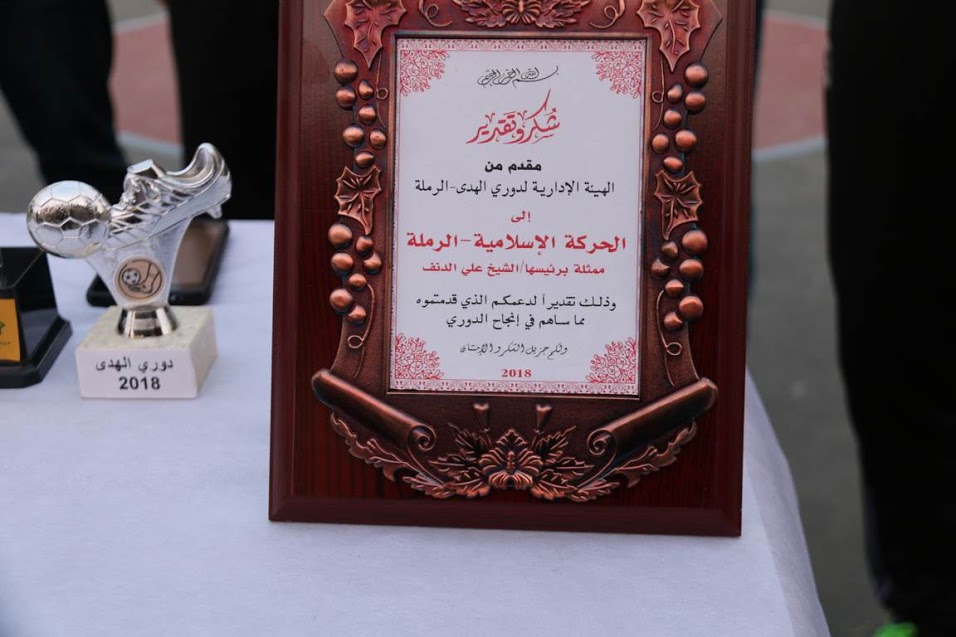 بسم الله الرحمن الرحيم
شكر وتقدير
مقدم من
الهيئة الإدارية لدوري الهدى-الرملة
إلى
الحركة الإسلامية-الرملة
ممثلة برئيسها/الشيخ علي الدنف
وذلك تقديراً لدعمكم الذي قدمتموه
مما ساهم في إنجاح الدوري
ولكم جزيل الشكر والإمتنان
2018
دوري الهدى
2018